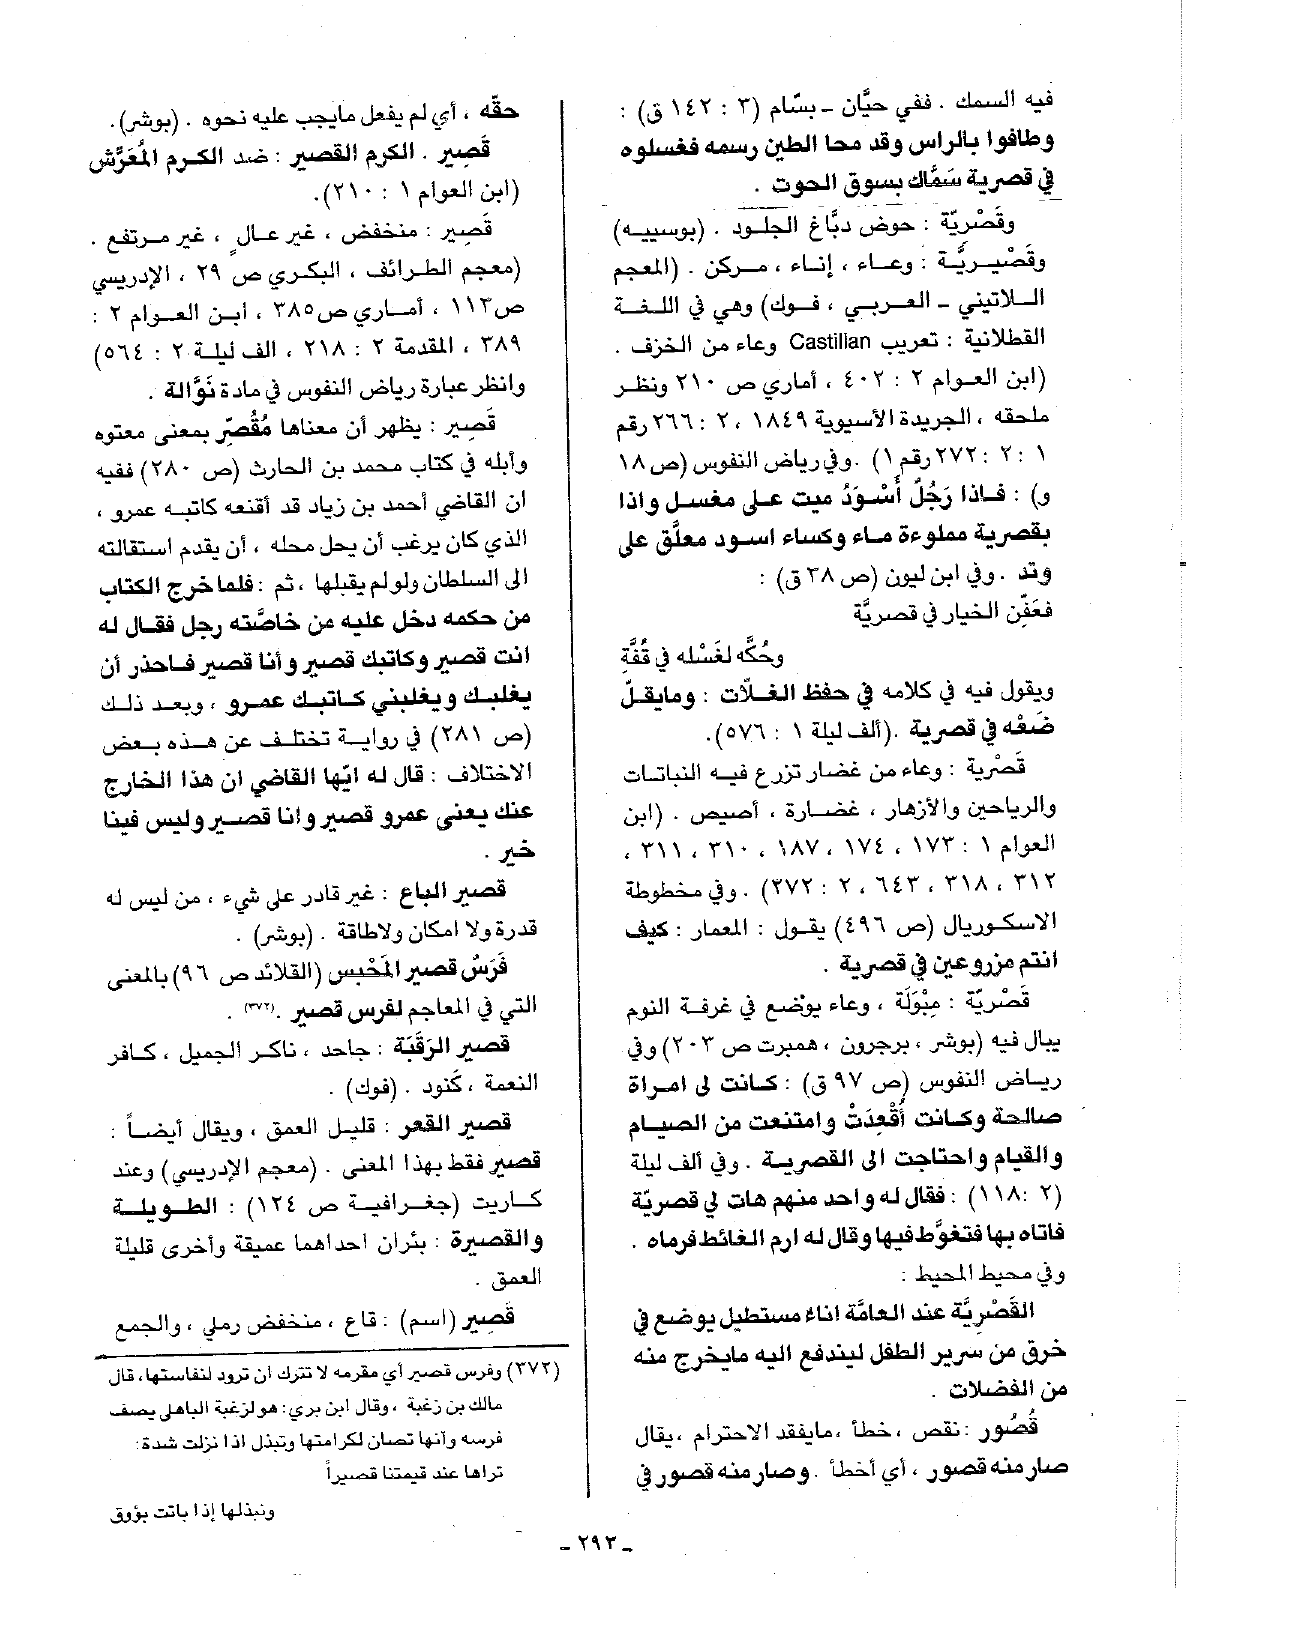 فيه السمك . ففي حيَّان ـ بسَّام (٣ : ١٤٢ ق) :
وطافوا بالراس وقد محا الطين رسمه فغسلوه
في قصرية سَمَّاك بسوق الحوت .
وقَصْريَّة : حوض دبَّاغ الجلود . (بوسييه)
وقَصْيريَّة : وعاء ، إناء ، مركن . (المعجم
اللاتيني ـ العربي ، فوك) وهي في اللغة
القطلانية : تعريب Castilian وعاء من الخزف .
(ابن العوام ٢ : ٤٠٢ ، أماري ص ٢١٠ ونظر
ملحقه ، الجريدة الأسيوية ١٨٤٩ ، ٢ : ٢٦٦ رقم
١ : ٢ : ٢٧٢ رقم ١) . وفي رياض النفوس (ص ١٨
و) : فاذا رَجُلٌ أَسْوَدُ ميت على مغسل واذا
بقصرية مملوءة ماء وكساء اسود معلَّق على
وتد . وفي ابن ليون (ص ٣٨ ق) :
فعَفِّن الخيار في قصريَّة
وحُكَّه لغَسْله في قُفَّةِ
ويقول فيه في كلامه في حفظ الغلَّات : ومايقلّ
ضَعْه في قصرية . (ألف ليلة ١ : ٥٧٦).
قَصْرية : وعاء من غضار تزرع فيه النباتات
والرياحين والأزهار ، غضارة ، أصيص . (ابن
العوام ١ : ١٧٣ ، ١٧٤ ، ١٨٧ ، ٣١٠ ، ٣١١ ،
٣١٢ ، ٣١٨ ، ٦٤٣ ، ٢ : ٢٧٢) . وفي مخطوطة
الاسكوريال (ص ٤٩٦) يقول : المعمار : كيف
انتم مزروعين في قصرية .
قَصْريّة : مِبْوَلَة ، وعاء يوضع في غرفة النوم
يبال فيه (بوشر ، برجرون ، همبرت ص ٢٠٣) وفي
رياض النفوس (ص ٩٧ ق) : كانت لى امراة
صالحة وكانت أُقْعِدَتْ وامتنعت من الصيام
والقيام واحتاجت الى القصرية . وفي ألف ليلة
(٢ : ١١٨) : فقال له واحد منهم هات لي قصريّة
فاتاه بها فتغوَّط فيها وقال له ارمِ الغائط فرماه .
وفي محيط المحيط :
القَصْريَّة عند العامَّة اناءٌ مستطيل يوضع في
خرق من سرير الطفل ليندفع اليه مايخرج منه
من الفضلات .
قُصُور : نقص ، خطأ ، مايفقد الاحترام ، يقال
صار منه قصور ، أي أخطأ . وصار منه قصور في
حقّه ، أي لم يفعل مايجب عليه نحوه . (بوشر).
قَصِير . الكرم القصير : ضد الكرم المُعَرَّش
(ابن العوام ١ : ٢١٠).
قَصِير : منخفض ، غير عالٍ ، غير مرتفع .
(معجم الطرائف ، البكري ص ٢٩ ، الإدريسي
ص١١٣ ، أماري ص٣٨٥ ، ابن العوام ٢ :
٣٨٩ ، المقدمة ٢ : ٢١٨ ، الف ليلة ٢ : ٥٦٤)
وانظر عبارة رياض النفوس في مادة نَوَّالة .
قَصِير : يظهر أن معناها مُقْصِّر بمعنى معتوه
وأبله في كتاب محمد بن الحارث (ص ٢٨٠) ففيه
ان القاضي أحمد بن زياد قد أقنعه كاتبه عمرو ،
الذي كان يرغب أن يحل محله ، أن يقدم استقالته
الى السلطان ولو لم يقبلها ، ثم : فلما خرج الكتاب
من حكمه دخل عليه من خاصَّته رجل فقال له
انت قصير وكاتبك قصير وأنا قصير فاحذر أن
يغلبك ويغلبني كاتبك عمرو ، وبعد ذلك
(ص ٢٨١) في رواية تختلف عن هذه بعض
الاختلاف : قال له ايّها القاضي ان هذا الخارج
عنك يعنى عمرو قصير وانا قصير وليس فينا
خير .
قصير الباع : غير قادر على شيء ، من ليس له
قدرة ولا امكان ولاطاقة . (بوشر) .
فَرَسٌ قصير المَحْبِس (القلائد ص ٩٦) بالمعنى
التي في المعاجم لفرس قصير .(٣٧٢) .
قصير الرَقَبَة : جاحد ، ناكر الجميل ، كافر
النعمة ، كَنود . (فوك) .
قصير القعر : قليل العمق ، ويقال أيضاً :
قصير فقط بهذا المعنى . (معجم الإدريسي) وعند
كاريت (جغرافية ص ١٢٤) : الطويلة
والقصيرة : بئران احداهما عميقة وأخرى قليلة
العمق .
قَصِير (اسم) : قاع ، منخفض رملي ، والجمع
(٣٧٢) وفرس قصير أي مقرمه لا تترك ان ترود لنفاستها، قال
مالك بن زغبة ، وقال ابن بري : هو لزغبة الباهلي يصف
فرسه وأنها تصان لكرامتها وتبذل اذا نزلت شدة :
تراها عند قيمتنا قصيراً
ونبذلها إذا باتت بؤوق
ـ ٢٩٣ ـ